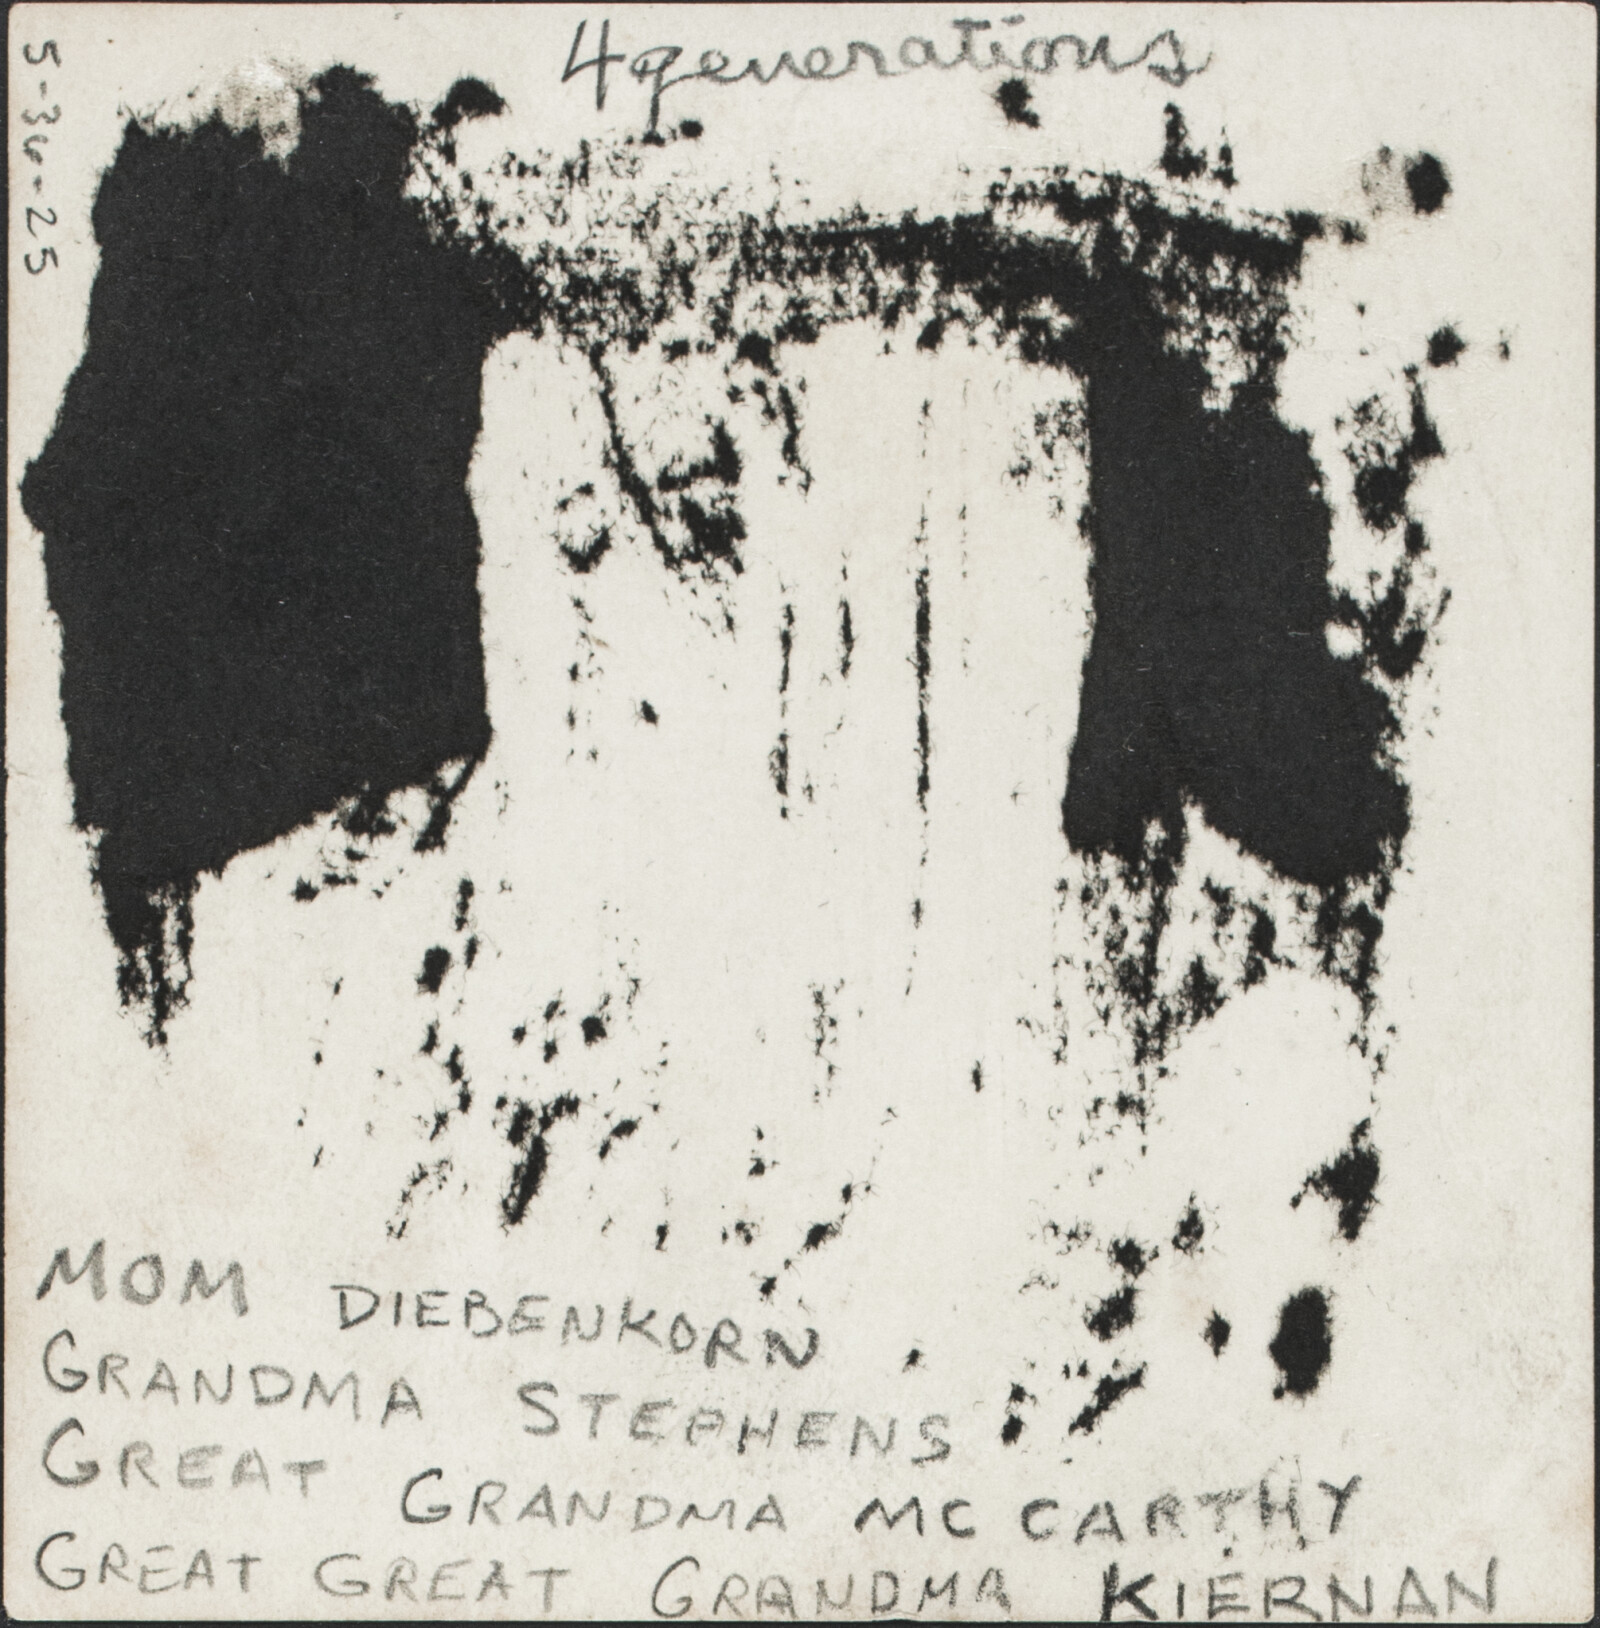 4 generations
5-30-25
MOM DIEBENKORN
GRANDMA STEPHENS
GREAT GRANDMA MC CARTHY
GREAT GREAT GRANDMA KIERNAN